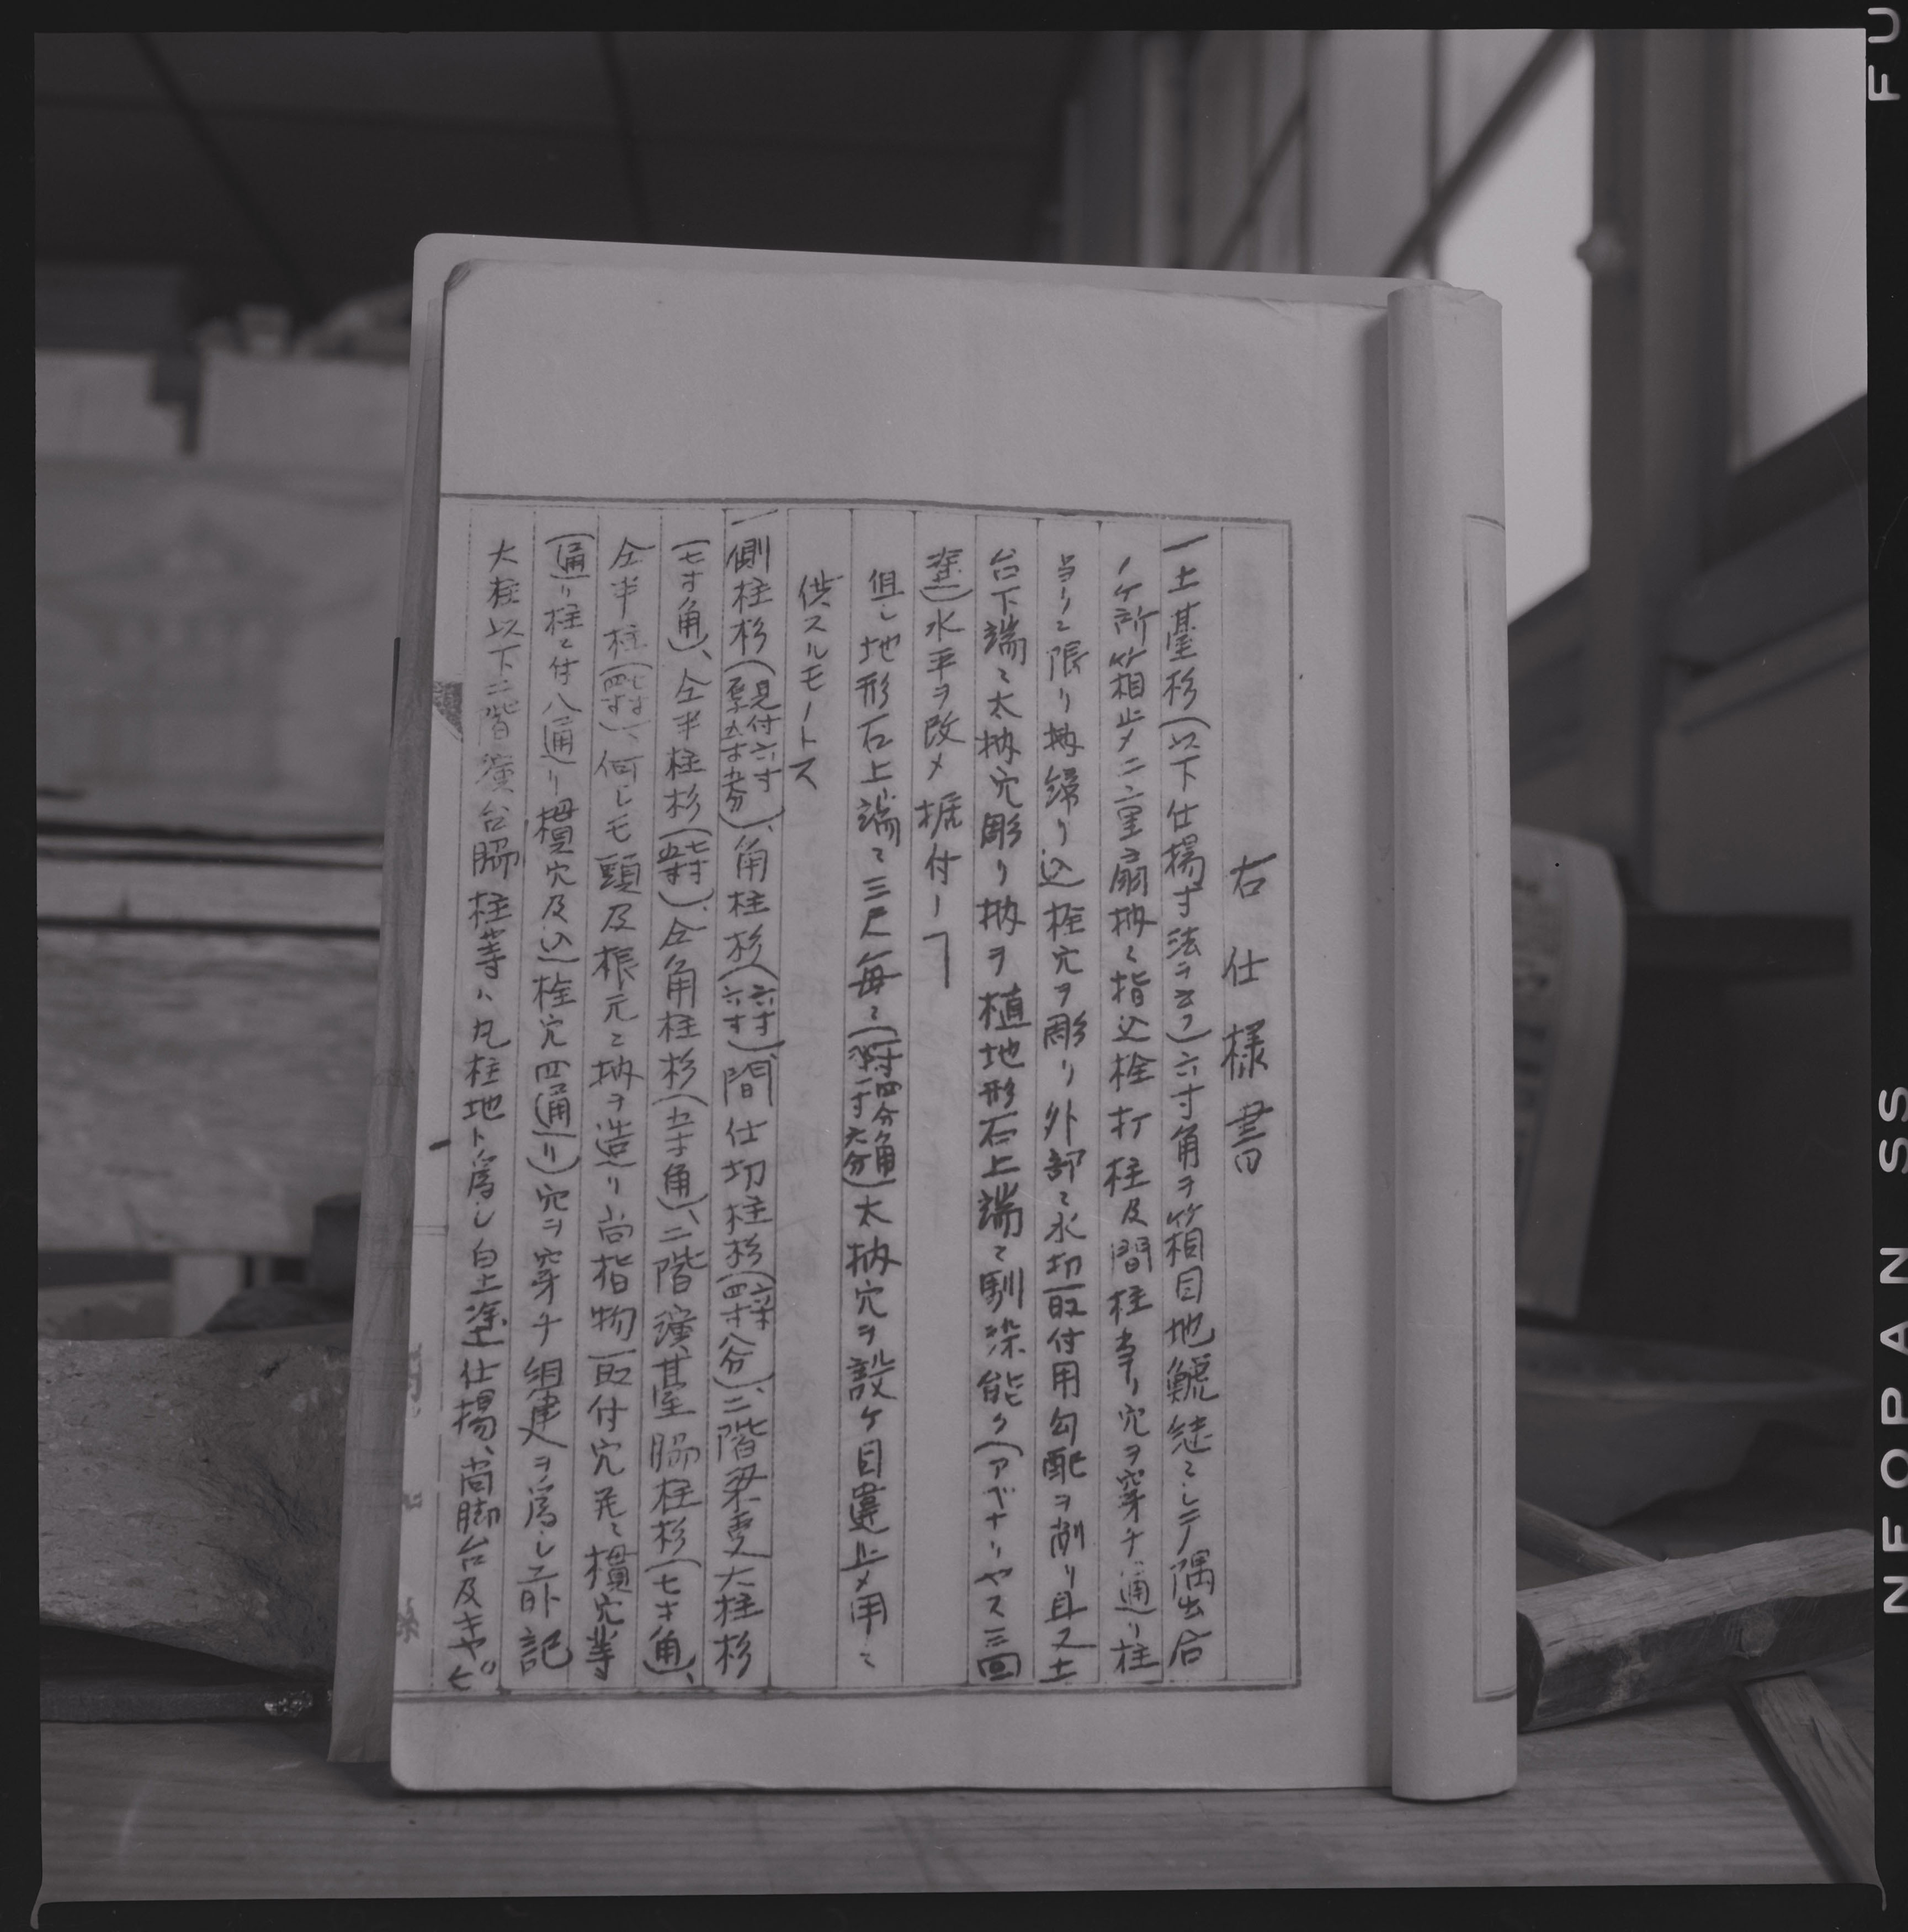 右仕様書
一土臺杉(以下仕揚寸法ヲ云フ)六寸角ヲ箱目地鯱継ニシテ隅出合
ノケ所箱相止メ二重扇枘ニ指込栓打柱及間柱当リ穴ヲ穿チ通リ柱
当リニ限リ枘締リ込栓穴ヲ彫リ外部ニ水切取付用勾配ヲ削リ且又土
台下端ニ太枘穴彫リ枘ヲ植地形石上端ニ馴染能ク(アベナリヤス三回
塗)水平ヲ改メ据付ノヿ
但シ地形石上端ニ三尺毎ニ 太枘穴ヲ設ケ目違止メ用ニ
供スルモノトス
一側柱杉(見付六寸厚五寸五分)、角柱杉(六寸六寸)間仕切柱杉 、二階梁受大柱杉
(七寸角)、仝半柱杉(七寸五寸)、仝角柱杉(五寸角)、二階演臺脇柱杉(七寸角)、
仝半柱(七寸四寸)、何レモ頭及根元ニ枘ヲ造リ尚指物取付穴並ニ樌穴等
(通リ柱ニ付八通リ樌穴及込栓穴四通リ)穴ヲ穿チ組建ヲ為シ工外記
大柱以下二階演台脇柱等ハ丸柱地ト為シ白土塗仕揚、尚脚台及キャヒ゜
NEOPAN SS
FU